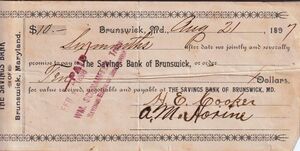 THE SAVINGS BANK
Brunswick, Maryland.
$10.— Brunswick, Md., Aug 21 1897
Six months after date we jointly and severally
promise to pay to The Savings Bank of Brunswick, or order
Ten Dollars.
for value received, negotiable and payable at THE SAVINGS BANK OF BRUNSWICK, MD.
PAID
H. E. Cooker